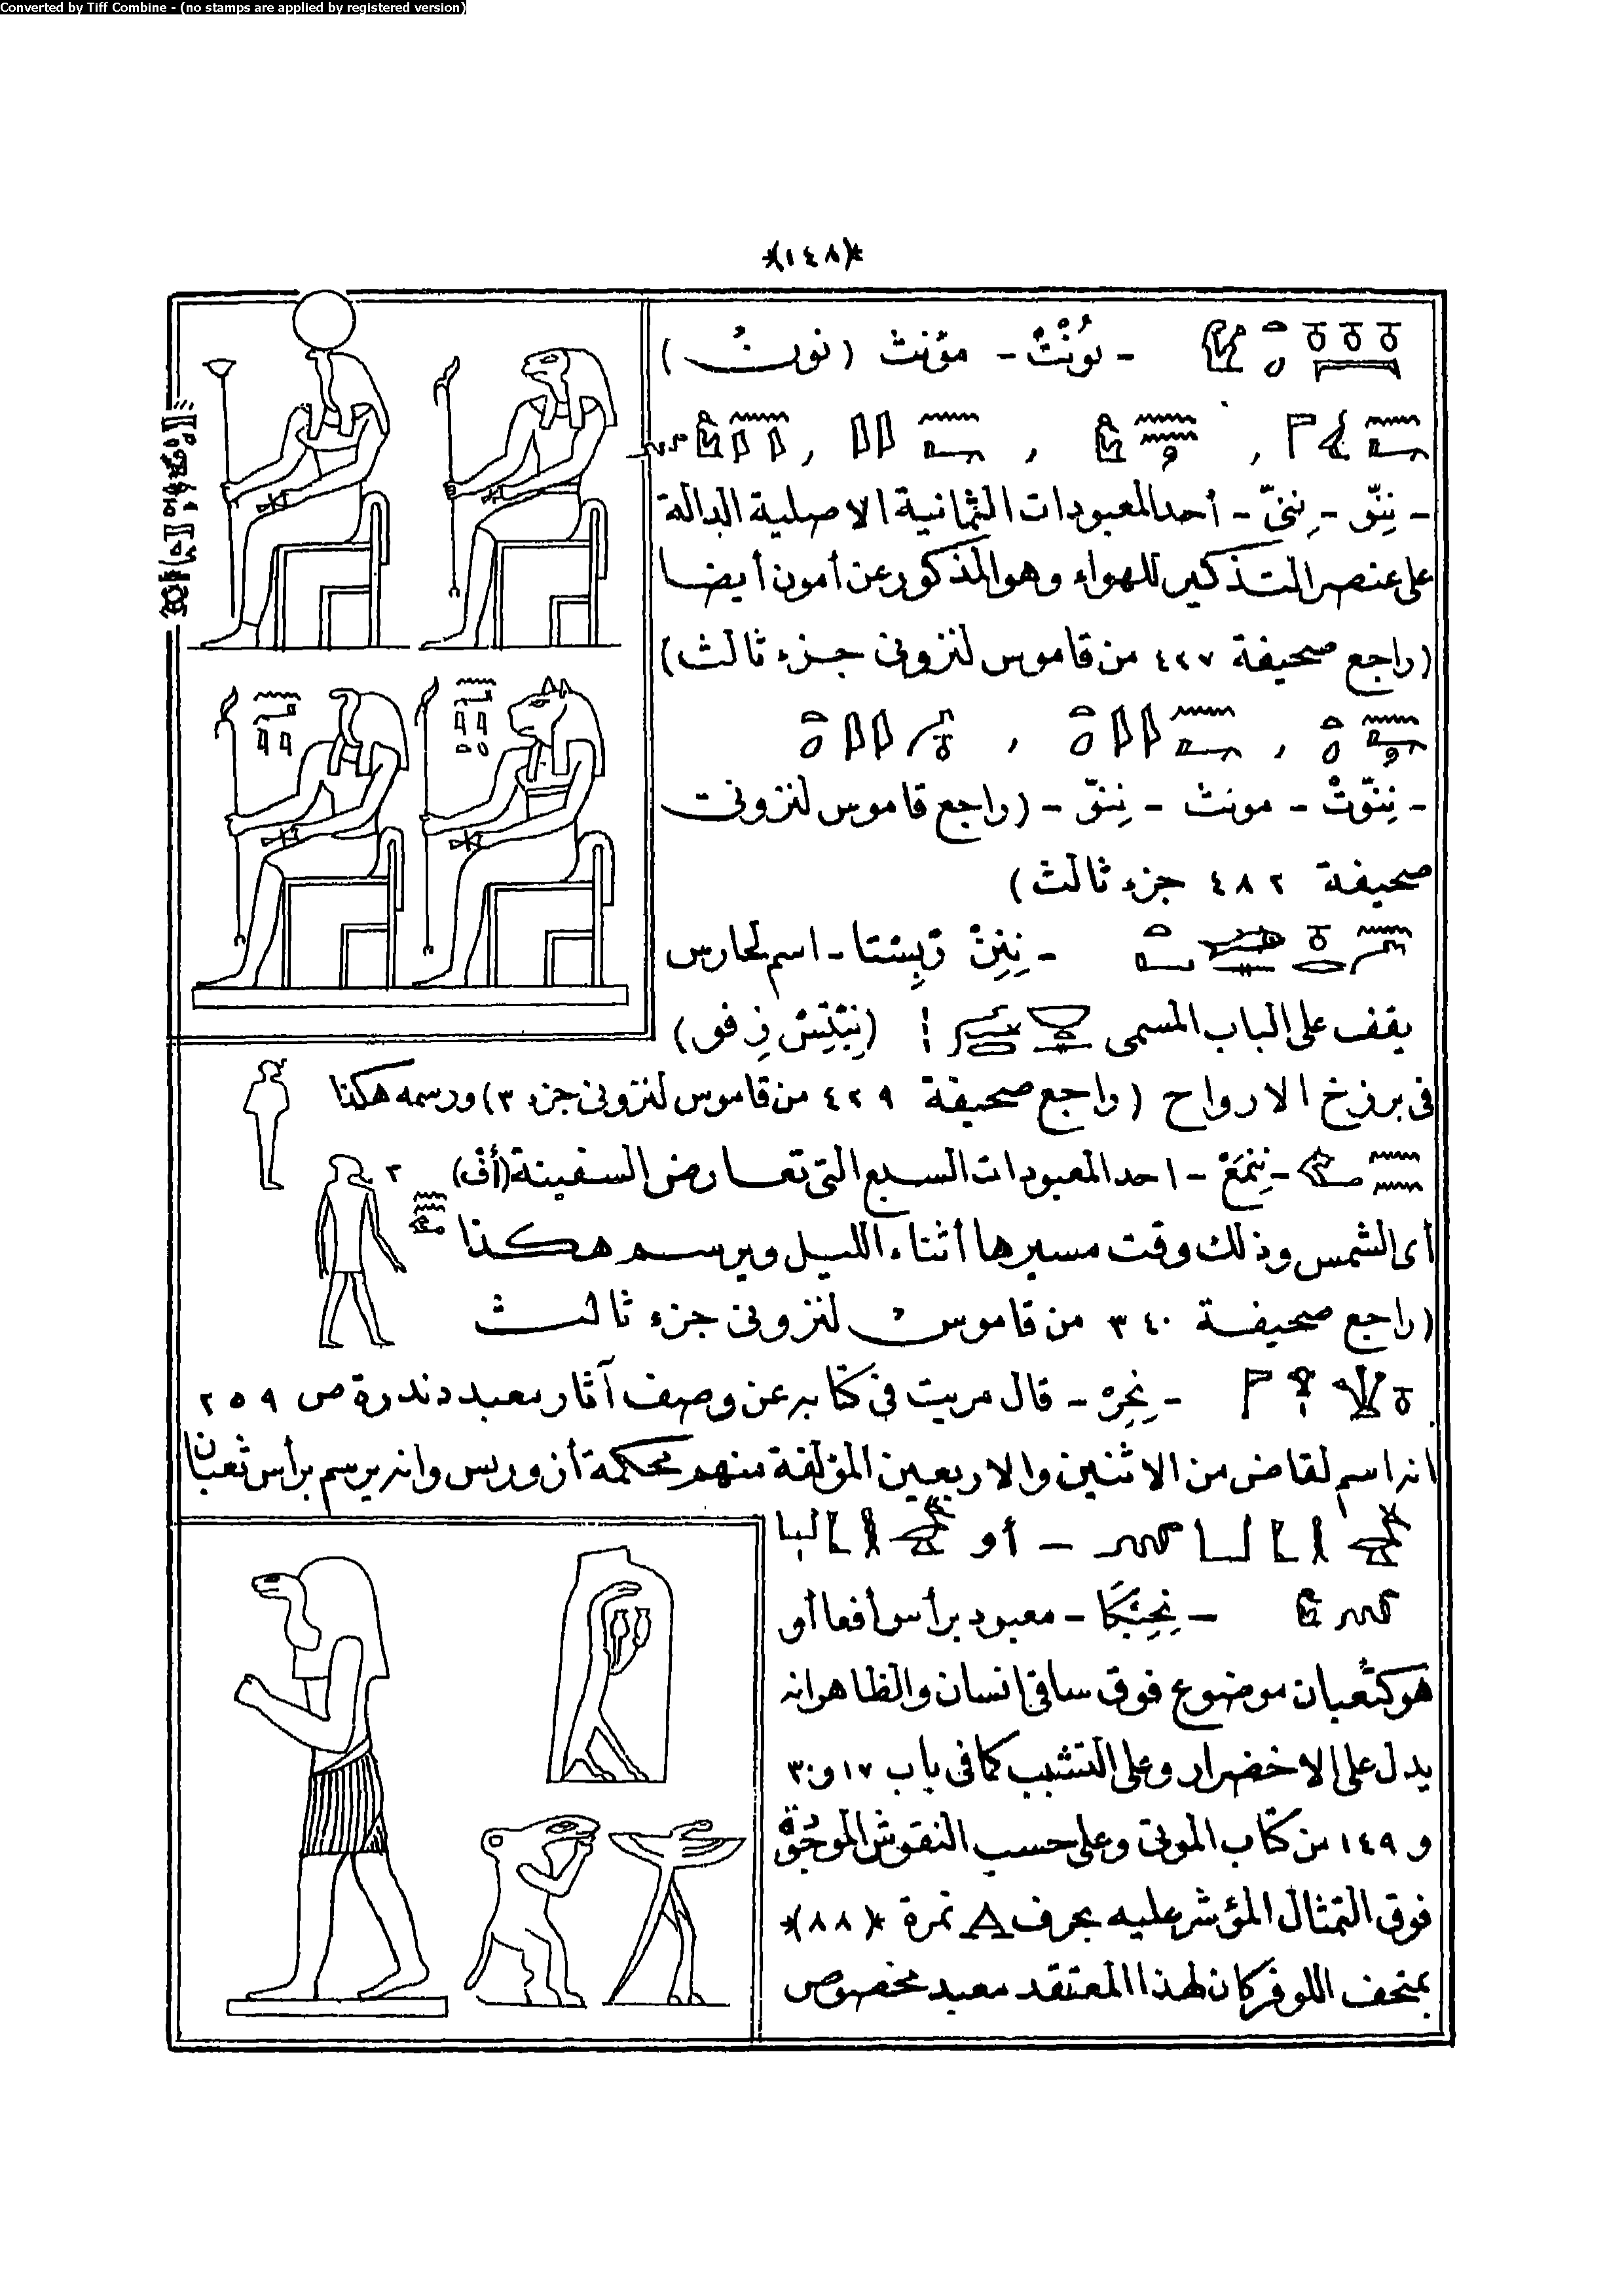 Converted by Tiff Combine - (no stamps are applied by registered version)
*(١٤٨)*
- نُونْتْ - مؤنث (نون)
- نِنّو - نِنىّ - أحد المعبودات الثمانية الاصلية الدالة
على عنصر التذكير للهواء وهو المذكور عن أمون أيضا
(راجع صحيفة ٤٢٧ من قاموس لنزونى جزء ثالث)
- نِنّوتْ - مونث - نِنوّ - (راجع قاموس لنزونى
صحيفة ٤٨٢ جزء ثالث)
- اسم لحارس
يقف على الباب المسمى
فى برزخ الارواح (راجع صحيفة ٤٢٩ من قاموس لنزونى جزء ٣) ورسمه هكذا
- احد المعبودات السبع التى تعارض السفينة (أفْ) ٢
أى الشمس وذلك وقت مسيرها أثناء الليل ويرسم هكذا
(راجع صحيفة ٣٤٠ من قاموس لنزونى جزء ثالث
- نِحِرْ - قال مريت فى كتابه عن وصف آثار معبد دندرة ص ٢٥٩
انه اسم لقاض من الاثنين والاربعين المؤلفة منهم محكمة أزوريس وانه يرسم برأس ثعبان
- أو
- نِحِبْكَا - معبود برأس أفعا أو
هو كثعبان موضوع فوق ساقى انسان والظاهر انه
يدل على الاخضرار وعلى التشبب كما فى باب ١٧ و ٣٠
و ١٤٩ من كتاب الموتى وعلى حسب النقوش الموجودة
فوق التمثال المؤشر عليه بحرف A نمرة *(٨٨)*
بمتحف اللوفر كان لهذا المعتقد معبد مخصوص